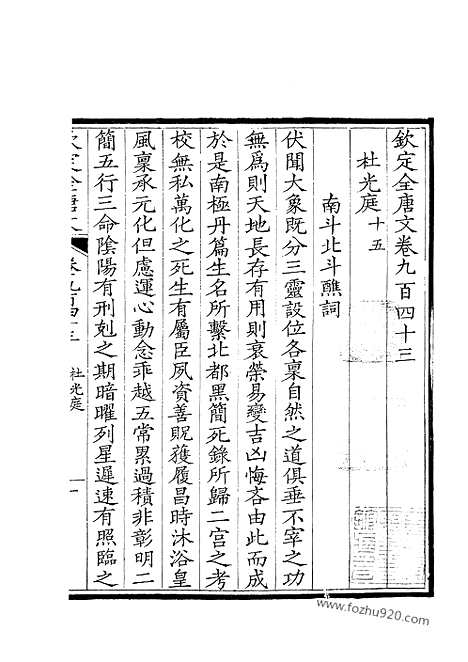 欽定全唐文卷九百四十三
杜光庭十五
南斗北斗醮詞
伏聞大象既分三靈設位各稟自然之道俱垂不宰之功
無為則天地長存有用則衰榮易變吉凶悔吝由此而成
於是南極丹篇生名所繫北都黑簡死錄所歸二宮之考
校無私萬化之死生有屬臣夙資善貺獲履昌時沐浴皇
風稟承元化但慮運心動念乖越五常累過積非彰明二
簡五行三命陰陽有刑剋之期暗曜列星遲速有照臨之
杜光庭
一
www.fozhu920.com